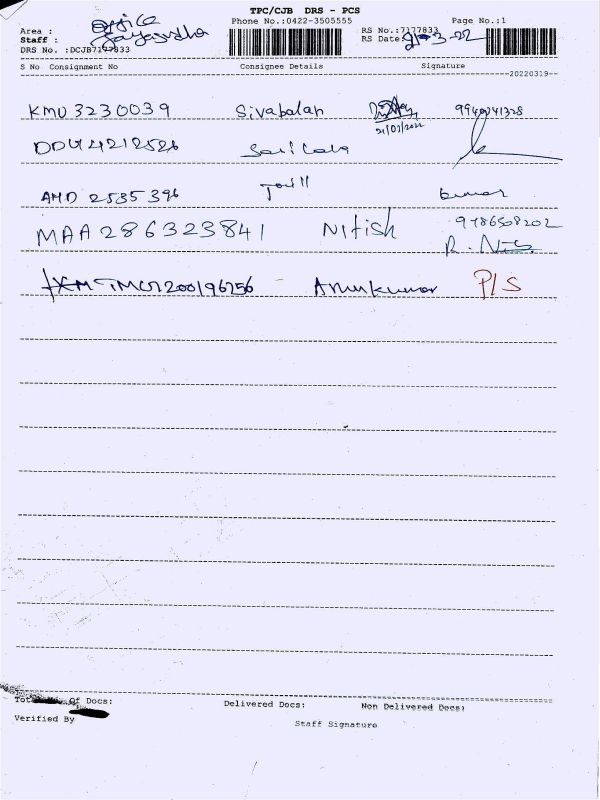 TPC/CJB DRS - PCS
Area : Office Phone No.:0422-3505555 Page No.:1
Staff : RS No.:7177833
DRS No. :DCJB7177833 RS Date: 21-3-22
S No Consignment No Consignee Details Signature
20220319
KMU3230039 Sivabalan 9940041328
21/03/2022
AMD 2535396 kumar
MAA286323841 Nitish 9786508202
R. Nits
Arunkumar P/S
Of Docs: Delivered Docs: Non Delivered Docs:
Verified By Staff Signature